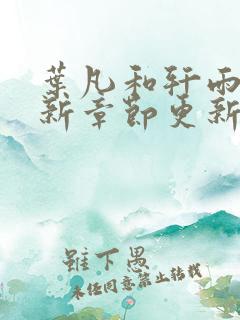 葉凡和轩雨
新章節更新
雖下愚
未经同意禁止转载